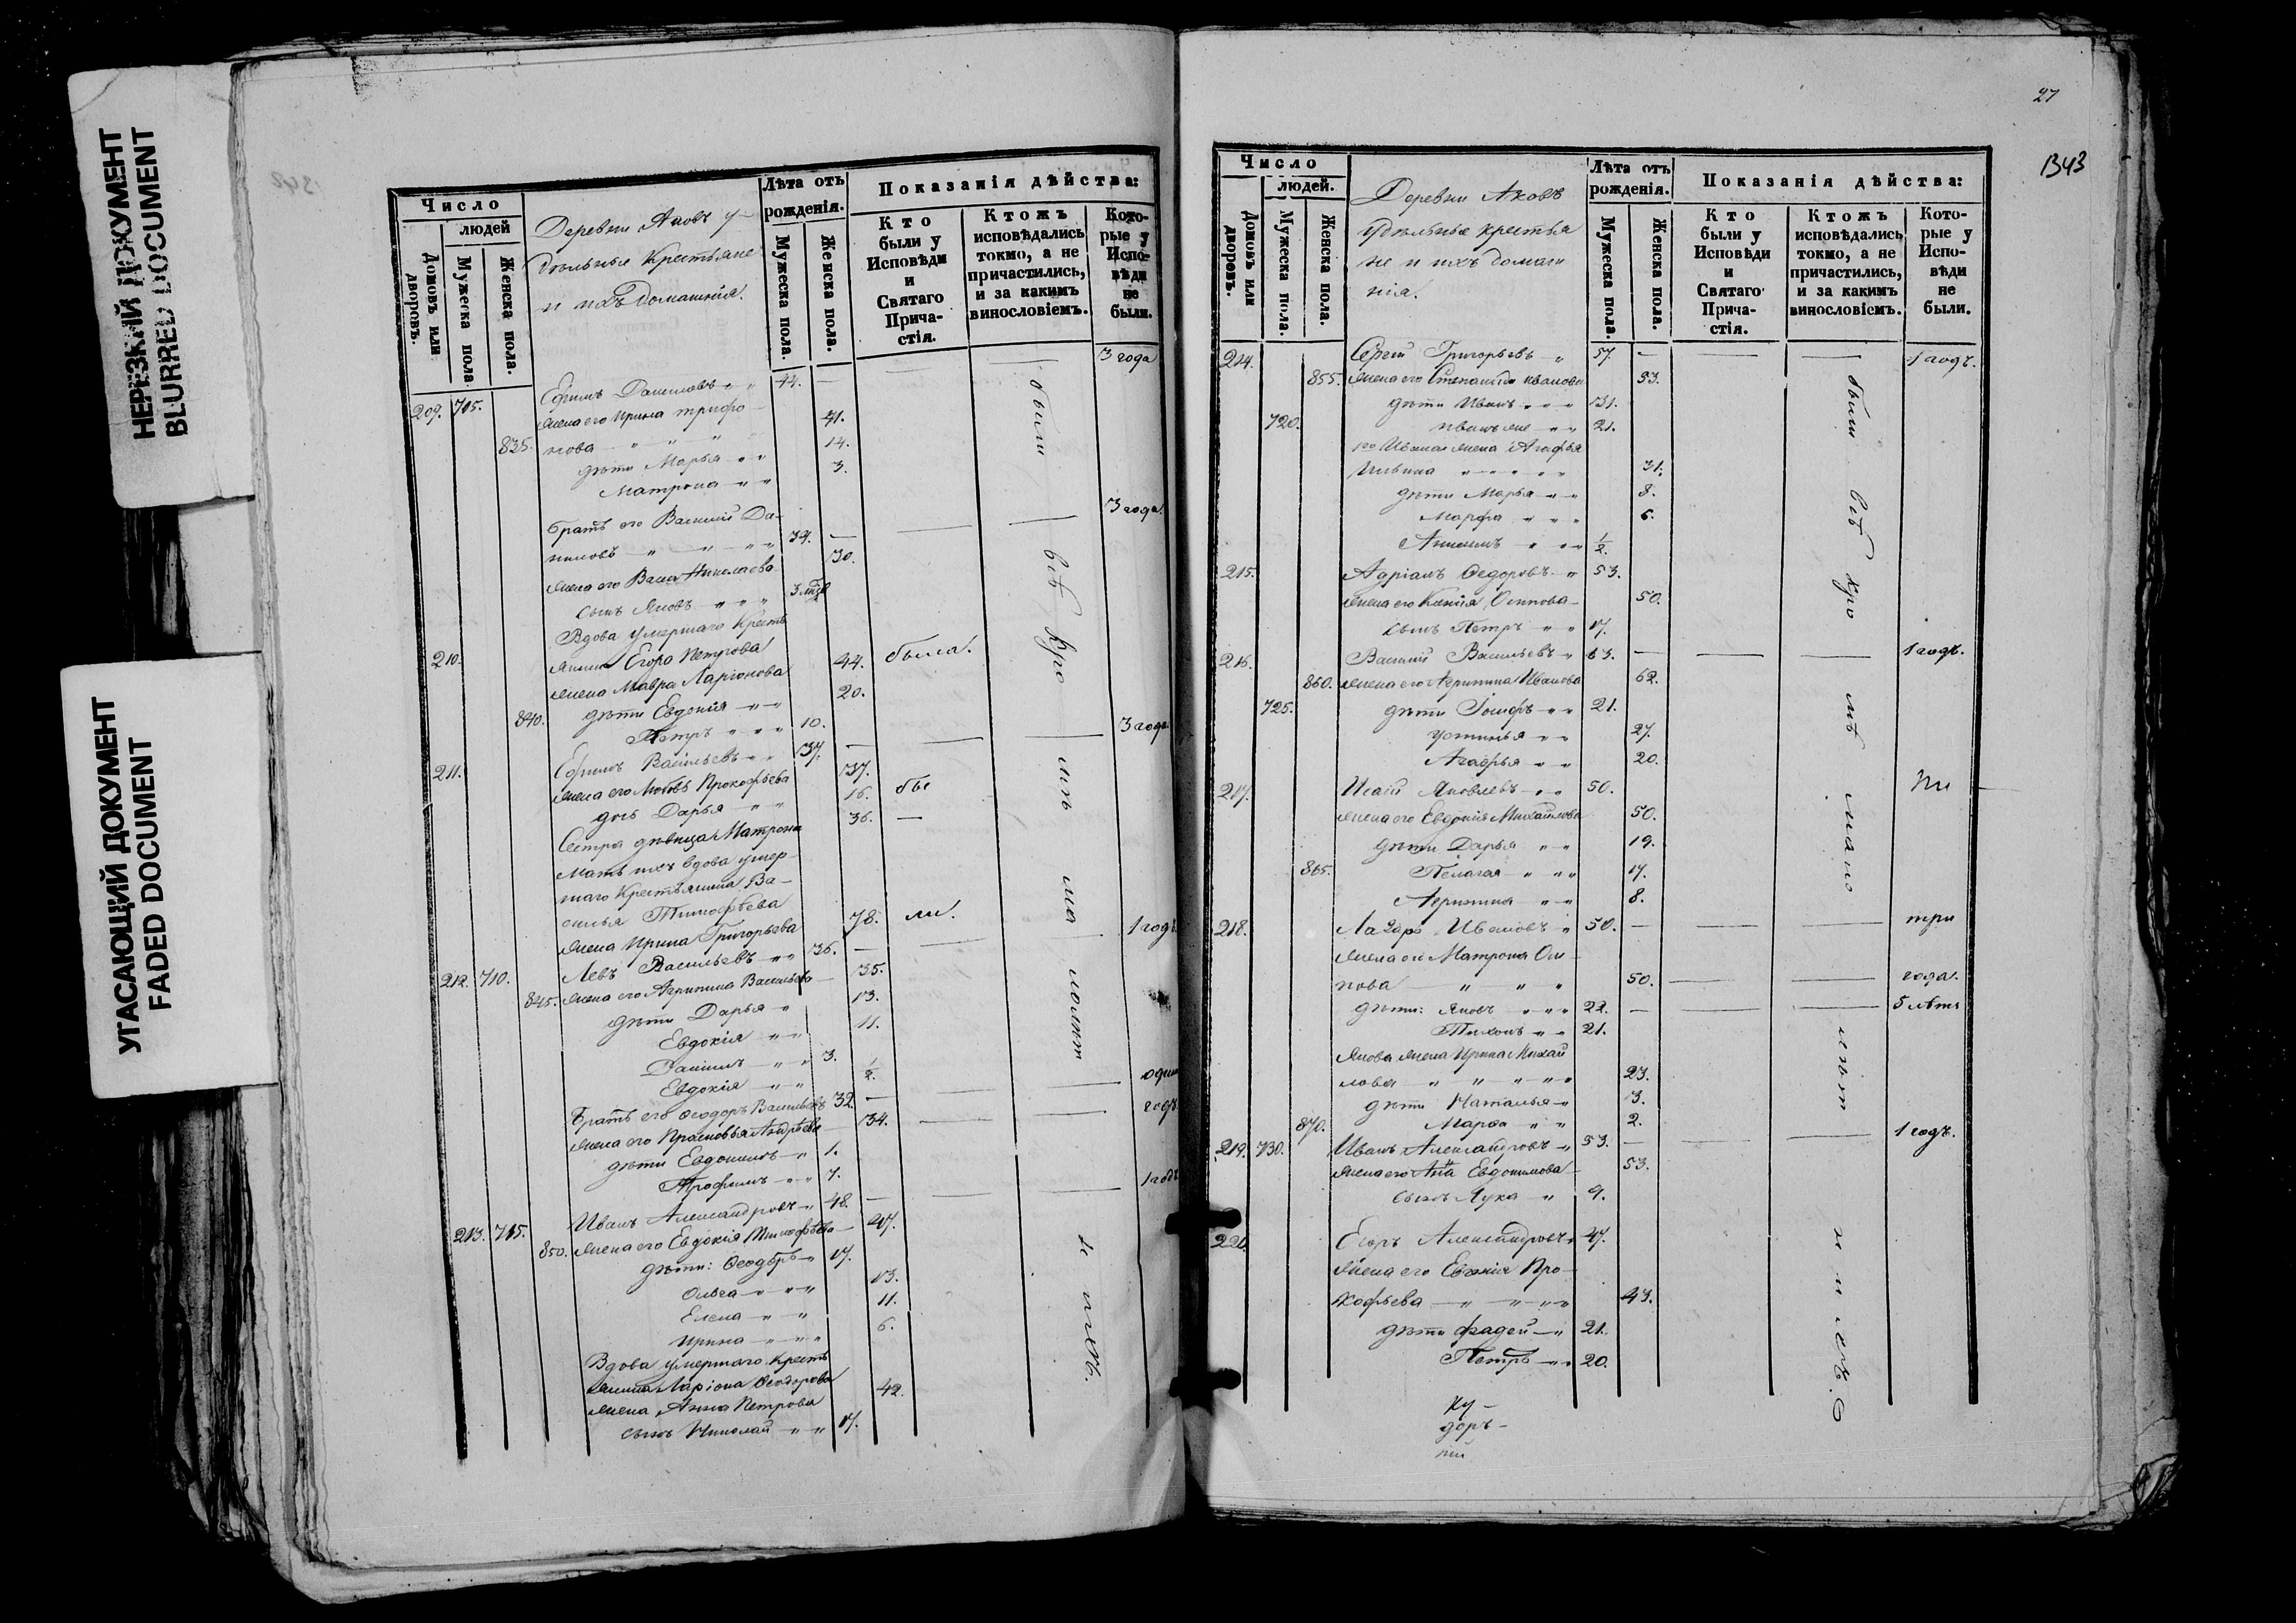 НЕРЕЗКИЙ ДОКУМЕНТ
BLURRED DOCUMENT
УГАСАЮЩИЙ ДОКУМЕНТ
FADED DOCUMENT
Число
людей
Домовъ или дворовъ.
Мужеска пола
Женска пола.
Деревни Аковъ у-
дѣльные Крестьяне
и ихъ домашнія.
Лѣта отъ рожденія.
Мужеска пола.
Женска пола.
Показанія дѣйства:
Кто были у Исповѣди и Святаго Причастія.
Ктожъ исповѣдались токмо, а не причастились, и за какимъ винословіемъ.
Которые у Исповѣди не были.
3 года
209. 705. Ефимъ Даниловъ 44. —
жена его Ирина Трифо-
835. нова 41.
дѣти Марья 14.
Матрона 3.
братъ его Василій Да- 3 года.
ниловъ 34. —
жена его Васса Николаева 30.
сынъ Яковъ 3
210. Вдова умершаго Кресть
янина Егора Петрова
жена Мавра Ларіонова 44. была.
840. дѣти Евдокія 20.
Петръ 10.
211. Ефимъ Васильевъ 37. — 3 года
жена его Любовь Прокофьева 37.
дочь Дарья 16. бы
Сестра дѣвица Матрона 36. —
Мать ихъ вдова умер-
шаго Крестьянина Ва-
силья Тимофѣева
жена Ирина Григорьева 78. ли.
212. 710. Левъ Васильевъ 36. — 1 годъ
845. жена его Агрипина Васильева 35.
дѣти Дарья 13.
Евдокія 11.
Даниилъ 3.
Евдокія 1/2.
братъ его Ѳеодоръ Васильевъ 32. — одинъ
жена его Прасковья Андрѣева 34. годъ
дѣти Евдокимъ 1.
Трофимъ 7.
213. 715. Иванъ Александровъ 48. — 1 годъ
850. жена его Евдокія Тимофѣева 47.
дѣти: Ѳеодоръ 17.
Ольга 13.
Елена 11.
Ирина 6.
Вдова умершаго Кресть
янина Ларіона Ѳеодорова
жена Анна Петрова 42.
сынъ Николай 17.
были всѣ кро мѣ
27
1343
Число
людей.
Домовъ или дворовъ.
Мужеска пола.
Женска пола.
Деревни Аковъ
Удѣльные крестья
не и ихъ домаш
нія.
Лѣта отъ рожденія.
Мужеска пола.
Женска пола.
Показанія дѣйства:
Кто были у Исповѣди и Святаго Причастія.
Ктожъ исповѣдались токмо, а не причастились, и за какимъ винословіемъ.
Которые у Исповѣди не были.
214. Сергій Григорьевъ 57. — 1 годъ.
855. жена его Степанида Иванова 53.
дѣти Иванъ 31.
720. Иванъ же 21.
1го Ивана жена Агафья
Ильина 31.
дѣти Марья 8.
Марфа 6.
1/2.
215. Адріанъ Ѳедоровъ 53.
жена его Ксенія Осипова 50.
сынъ Петръ 17.
216. Василій Васильевъ 63. — 1 годъ.
860. жена его Агрипина Иванова 62.
725. дѣти Іосифъ 21.
Устинья 27.
Агафья 20.
217. Исаій Яковлевъ 50.
жена его Евдокія Михайлова 50.
дѣти Дарья 19.
865. Пелагея 17.
Агрипина 8.
218. Лазарь Ивановъ 50. — три
жена его Матрона
нова 50. года.
дѣти: Яковъ 22. — 5 лѣтъ
Тихонъ 21.
Якова жена Ирина Михай
лова 23.
дѣти Наталья 3.
870. Марѳа 2.
219. 730. Иванъ Александровъ 53. — 1 годъ.
жена его Анна Евдокимова 53.
сынъ Лука 9.
220. Егоръ Александровъ 47.
жена его Евгенія Про
кофьева 43.
дѣти Фадей 21.
Петръ 20.
были всѣ кро мѣ
ку-
доръ-